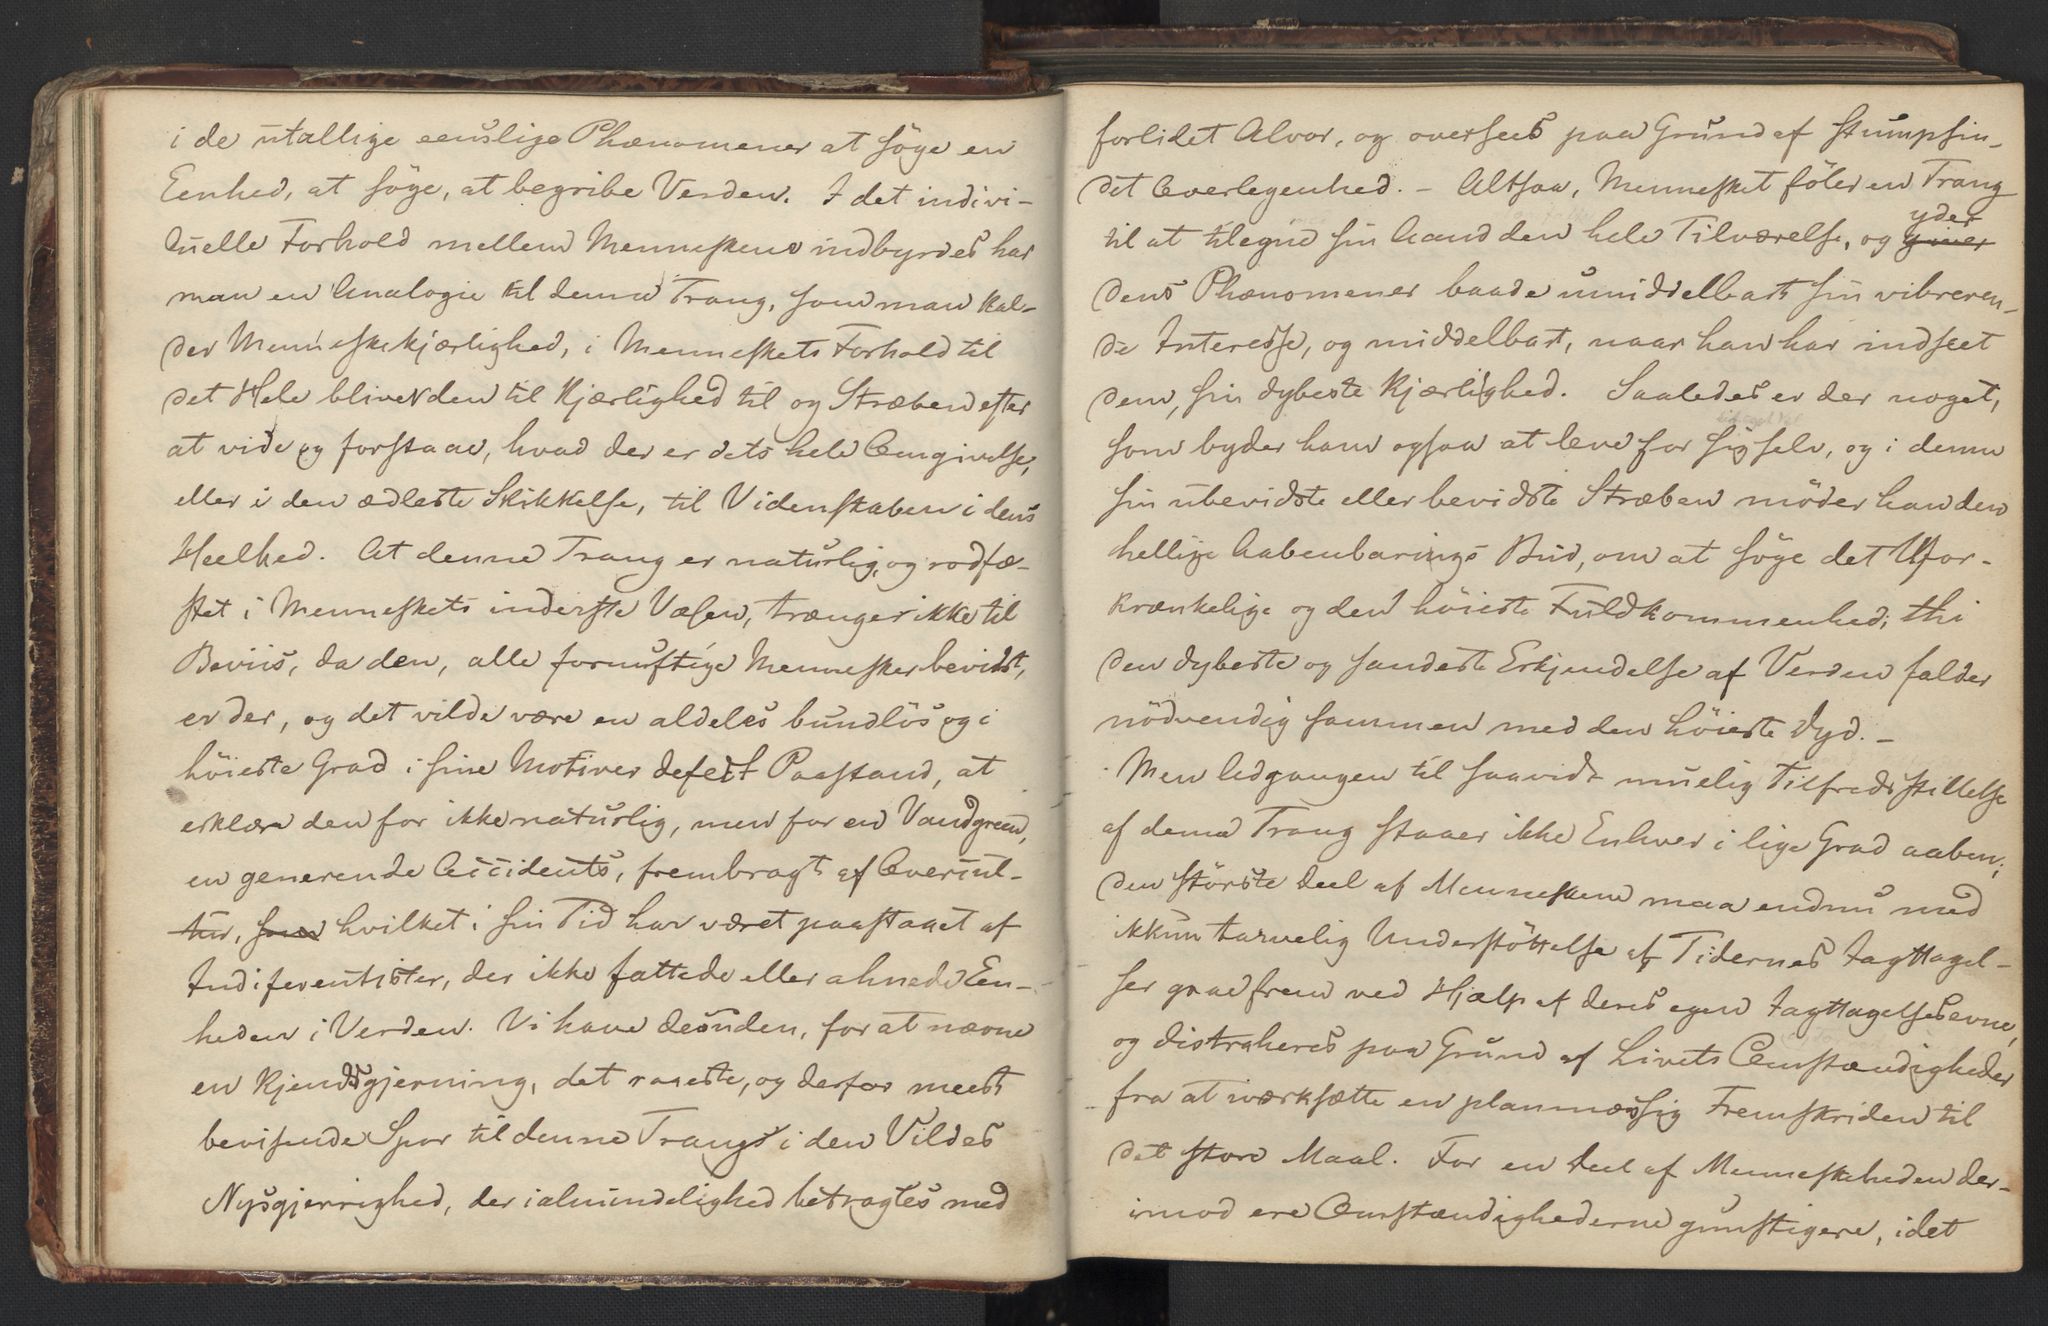 i de utallige eenslige Phænomener at söge en
Eenhed, at söge, at begribe Verden. I det indivi-
duelle Forhold mellem Menneskene indbyrdes har
man en Analogie til denne Trang, som man kal-
der Menneskekjærlighed, i Menneskets Forhold til
det Hele bliver den til Kjærlighed til og Stræben efter
at vide og forstaae, hvad der er dets hele Omgivelse,
eller i den ædleste Skikkelse, til Videnskaben i dens
Heelhed. At denne Trang er naturlig, og rodfæ-
stet i Menneskets inderste Væsen, trænger ikke til
Beviis, da den, alle fornuftige Mennesker bevidst,
er der, og det vilde være en aldeles bundlös og i
höieste Grad i sine Motiver defect Paastand, at
erklære den for ikke naturlig, men for en Vandgreen,
en generende Accidents, frembragt af Overcul-
tur, som hvilket i sin Tid har været paastaaet af
Indiferentister, der ikke fattede eller ahnede Een-
heden i Verden. Vi have desuden, for at nævne
en Kjendsgjerning, det raaeste, og derfor meest
bevisende Spor til denne Trang i den Vildes
Nysgjerrighed, der i almindelighed betragtes med
forlidet Alvor, og oversees paa Grund af stumpsin-
det Overlegenhed. - Altsaa, Mennesket föler en Trang
yder
til at tilegne sin Aand den hele Tilværelse, og giver
dens Phænomener baade umiddelbart sin vibreren-
de Interesse, og middelbart, naar han har indseet
dem, sin dybeste Kjærlighed. Saaledes er der noget,
som byder ham ogsaa at leve for sig selv, og i denne
sin ubevidste eller bevidste Stræben möder han den
hellige Aabenbarings Bud, om at söge det Ufor-
krænkelige og den höieste Fuldkommenhed; thi
den dybeste og sandeste Erkjendelse af Verden falder
nödvendig sammen med den höieste Dyd. -
Men Adgangen til saavidt muelig Tilfredsstillelse
af denne Trang staaer ikke Enhver i lige Grad aaben;
den störste Deel af Menneskene maa endnu med
ikkun tarvelig Understöttelse af Tidernes Iagttagel-
ser gaae frem ved Hjælp af deres egen Iagttagelsesevne,
og distraheres paa Grund af Livets Omstændigheder
fra at iværksætte en planmæssig Fremskriden til
det store Maal. For en Deel af Menneskeheden der-
imod ere Omstændighederne gunstigere, idet